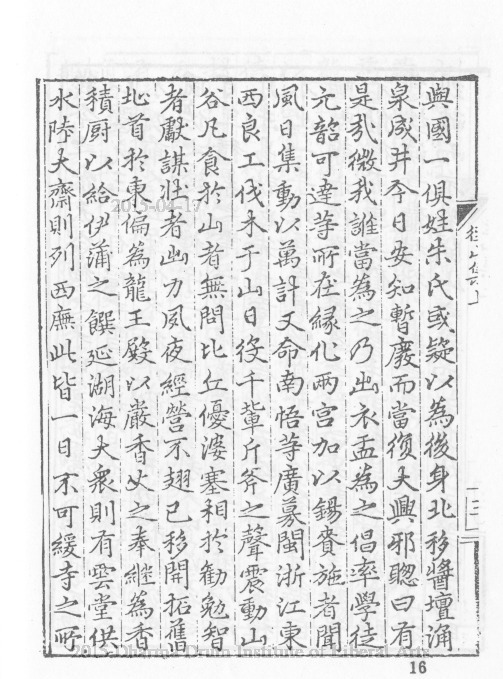 與國一俱姓朱氏或疑以為後身北移醬壇涌
泉成井今日安知暫廢而當復大興邪聰曰有
是哉微我誰當為之乃出衣盂為之倡率學徒
元韶可達等所在緣化兩宮加以錫賚施者聞
風日集動以萬計又命南悟等廣募閩浙江東
西良工伐木于山日役千輩斤斧之聲震動山
谷凡食於山者無問比丘優婆塞相於勸勉智
者獻謀壯者出力夙夜經營不翅已移開拓舊
址首於東偏為龍王殿以嚴香火之奉繼為香
積厨以給伊蒲之饌延湖海大衆則有雲堂供
水陸大齋則列西廡此皆一日不可緩寺之所
徑山志六上
2015-04-17
2015 Dharma Drum Institute of Liberal Arts
16